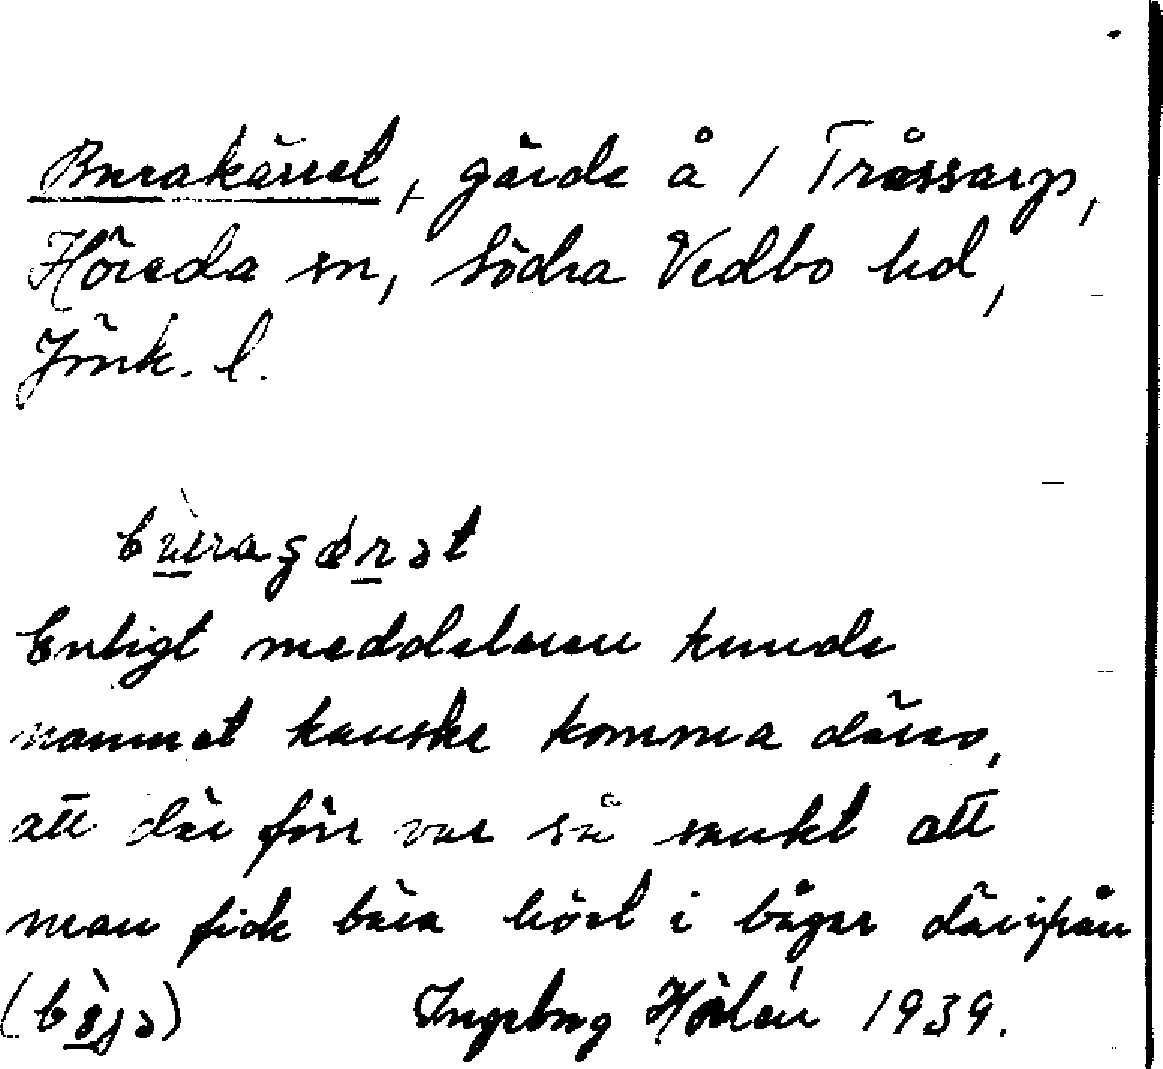 Burakärret, gärde å 1 Tråssarp,
Höreda sn, Södra Vedbo hd,
Jönk. l.
Enligt meddelaren kunde
namnet kanske komma därav,
att där förr var så sankt att
man fick bära höet i bågar därifrån
Ingeborg 1939.